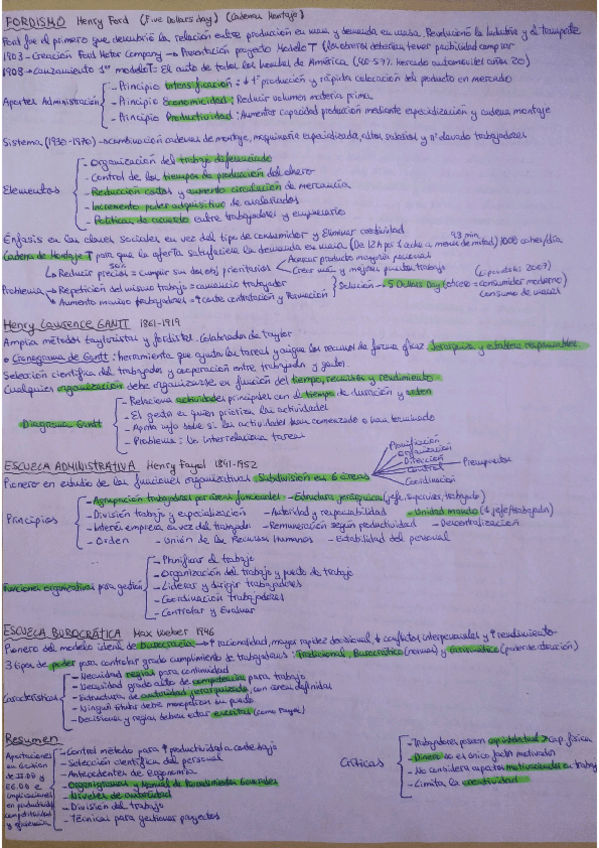 FORDISMO Henry Ford (Five Dollars day) (Cadenas Montaje)
Ford fue el primero que descubrió la relación entre producción en masa y demanda en masa. Revolucionó la industria y el transporte
1903 - Creación Ford Motor Company → Presentación proyecto Modelo T (los obreros deberían tener posibilidad comprar
1908 → Lanzamiento 1er modelo T = El auto de todos los hombres de América (40-57% mercado automóviles años 20)
Aportes Administración
- Principio Intensificación: ↓ t° producción y rápida colocación del producto en mercado
- Principio Economicidad: Reducir volumen materia prima
- Principio Productividad: Aumentar capacidad producción mediante especialización y cadena montaje
Sistema (1930-1970) → combinación cadenas de montaje, maquinaria especializada, altos salarios y nº elevado trabajadores
Elementos
- Organización del trabajo diferenciado
- Control de los tiempos de producción del obrero
- Reducción costos y aumento circulación de mercancía
- Incremento poder adquisitivo de asalariados
- Políticas de acuerdo entre trabajadores y empresario
Énfasis en las clases sociales en vez del tipo de consumidor y Eliminar
Cadena de Montaje T para que la oferta satisficiera la demanda en masa (De 12 hps 1 coche a menos de mitad) 93 min 1000 coches/día
↳ Reducir precios = cumplir sus dos obj prioritarios
Acercar producto mayoría personal
Crear más y mejores puestos trabajo
Problema → Repetición del mismo trabajo = cansancio trabajador
↳ Aumento masivo trabajadores = ↑ coste contratación y formación
Solución - 5 Dollars Day (obrero = consumidor moderno)
(Lipovetsky 2007)
consumo de masas
Henry Lawrence GANTT 1861-1919
Amplía métodos tayloristas y fordistas. Colaborador de Taylor
Cronograma de Gantt: herramienta que ajusta las tareas y asigne los recursos de forma eficaz. Jerarquiza y establece responsables
Selección científica del trabajador y cooperación entre trabajador y gestor
Cualquier organización debe organizarse en función del tiempo, recursos y rendimiento
Diagrama Gantt
- Relaciona actividades principales con el tiempo de duración y orden
- El gestor es quien prioriza las actividades
- Aporta info sobre si las actividades han comenzado o han terminado
- Problema: No interrelaciona tareas
ESCUELA ADMINISTRATIVA Henry Fayol 1841-1952
Pionero en estudio de las funciones organizativas. Subdivisión en 6 áreas
Planificación
Organización
Dirección
Control
Coordinación
Presupuestos
Principios
- Agrupación trabajadores por áreas funcionales - Estructura jerárquica (jefe, supervisor, trabajador)
- División trabajo y especialización - Autoridad y responsabilidad - Unidad mando (1 jefe/trabajador)
- Interés empresa en vez del trabajador - Remuneración según productividad - Descentralización
- Orden - Unión de los Recursos Humanos - Estabilidad del personal
Funciones organizativas para gestión
- Planificar el trabajo
- Organización del trabajo y puesto de trabajo
- Liderar y dirigir trabajadores
- Coordinación trabajadores
- Controlar y Evaluar
ESCUELA BUROCRÁTICA Max Weber 1946
Pionero del modelo ideal de burocracia → ↑ racionalidad, mayor rapidez decisional, ↓ conflictos interpersonales y ↑ rendimiento
3 tipos de poder para controlar grado cumplimiento de trabajadores: Tradicional, Burocrático (normas) y carismático (poder de atracción)
Características
- Necesidad reglas para continuidad
- Necesidad grado alto de competencias para trabajo
- Estructura de autoridad jerarquizada, con áreas definidas
- Ningún titular debe monopolizar su puesto
- Decisiones y reglas deben estar escritas (como Fayol)
Resumen
Aportaciones en Gestión de RRHH y EEOO e implicaciones en productividad, competitividad y eficiencia
- Control método para ↑ productividad a coste bajo
- Selección científica del personal
- Antecedentes de Ergonomía
- Organigramas y Manual de Procedimientos Generales
- Niveles de autoridad
- División del trabajo
- Técnicas para gestionar proyectos
Críticas
- Trabajadores poseen capacidad mental > cap. física
- Dinero no el único factor motivador
- No considera aspectos motivacionales en trabajo
- Limita la creatividad